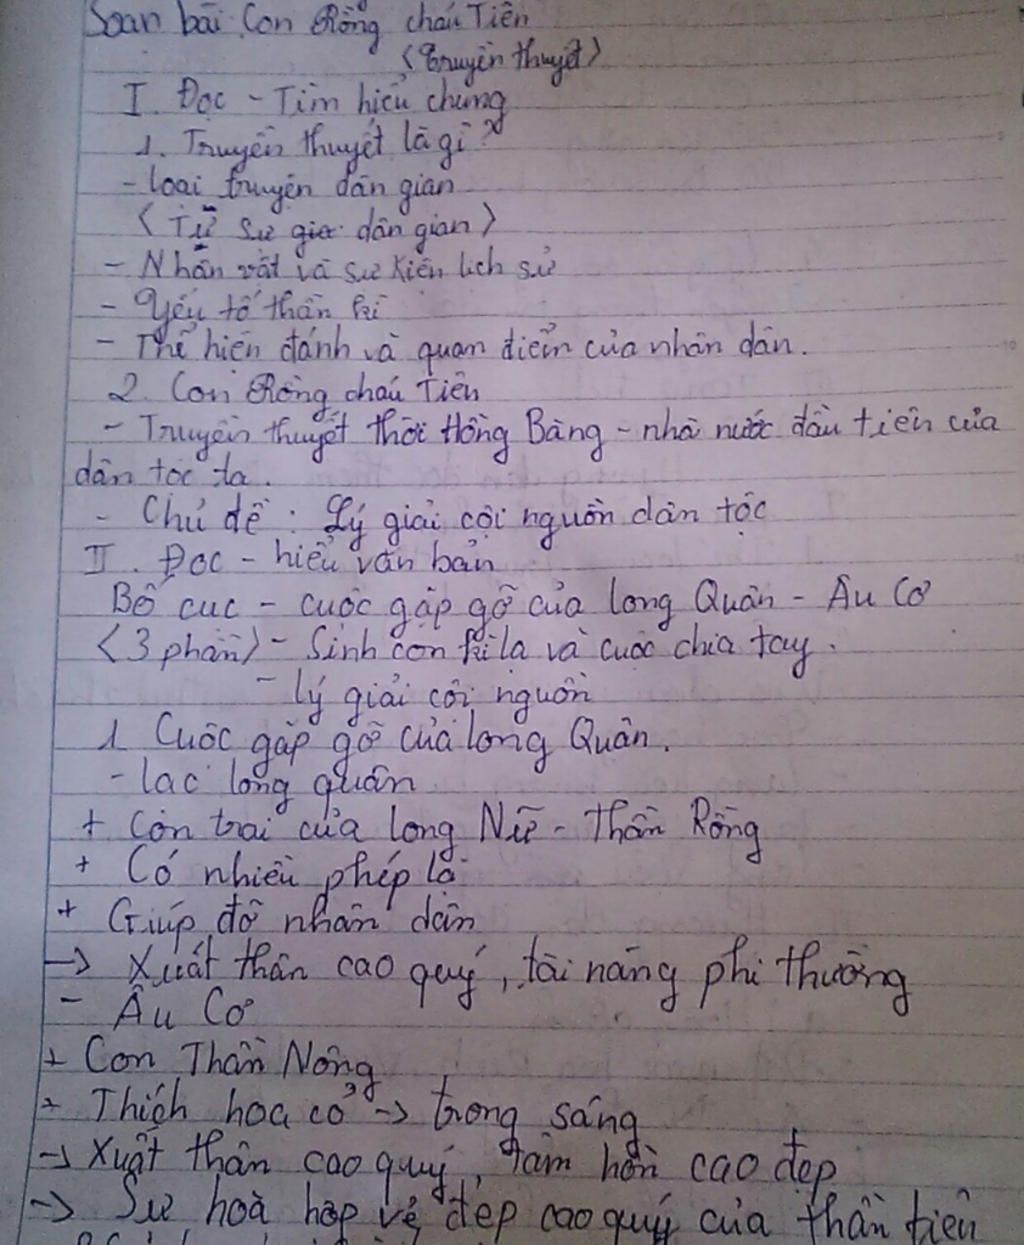 Soạn bài Con Rồng cháu Tiên
(Truyền thuyết)
I. Đọc - Tìm hiểu chung
1. Truyền thuyết là gì?
- loại truyện dân gian
(Tự sự dân gian)
- Nhân vật và sự kiện lịch sử
- Yếu tố thần kì
- Thể hiện đánh và quan điểm của nhân dân.
2. Con Rồng cháu Tiên
- Truyền thuyết thời Hồng Bàng - nhà nước đầu tiên của
dân tộc ta.
- Chủ đề : Lý giải cội nguồn dân tộc
II. Đọc - hiểu văn bản
Bố cục - cuộc gặp gỡ của long Quân - Âu Cơ
(3 phần) - Sinh con kì lạ và cuộc chia tay.
- lý giải cội nguồn
1. Cuộc gặp gỡ của long Quân.
- lạc long quân
+ Con trai của long Nữ - Thần Rồng
+ Có nhiều phép lạ
+ Giúp đỡ nhân dân
-> Xuất thân cao quý, tài năng phi thường
- Âu Cơ
+ Con Thần Nông
+ Thích hoa cỏ -> trong sáng
-> Xuất thân cao quý, tâm hồn cao đẹp
-> Sự hoà hợp vẻ đẹp cao quý của thần tiên